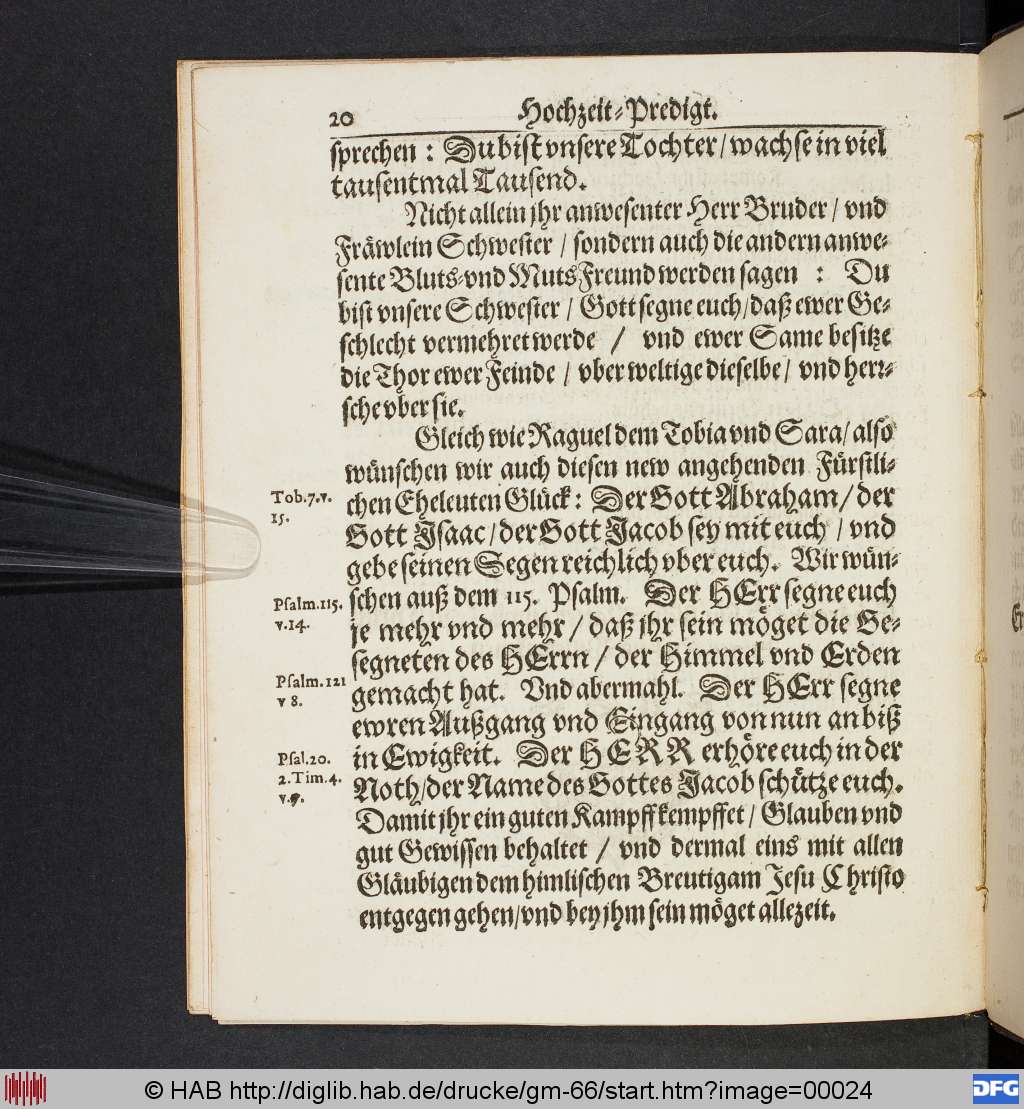 20 Hochzeit-Predigt.
sprechen : Du bist vnsere Tochter / wachse in viel
tausentmal Tausend.
Nicht allein jhr anwesenter Herr Bruder / vnd
Fräwlein Schwester / sondern auch die andern anwe-
sente Bluts- vnd Muts Freund werden sagen : Du
bist vnsere Schwester / Gott segne euch / daß ewer Ge-
schlecht vermehret werde / vnd ewer Same besitze
die Thor ewer Feinde / vberweltige dieselbe / vnd herr-
sche vber sie.
Gleich wie Raguel dem Tobia vnd Sara / also
wünschen wir auch diesen new angehenden Fürstli-
Tob.7.v.
15.
chen Eheleuten Glück : Der Gott Abraham / der
Gott Isaac / der Gott Jacob sey mit euch / vnd
gebe seinen Segen reichlich vber euch. Wir wün-
Psalm.115.
v.14.
schen auß dem 115. Psalm. Der HErr segne euch
je mehr vnd mehr / daß jhr sein möget die Ge-
segneten des HErrn / der Himmel vnd Erden
Psalm.121
v 8.
gemacht hat. Vnd abermahl. Der HErr segne
ewren Außgang vnd Eingang von nun an biß
Psal.20.
2.Tim.4.
v.7.
in Ewigkeit. Der HERR erhöre euch in der
Noth / der Name des Gottes Jacob schütze euch.
Damit jhr ein guten Kampff kempffet / Glauben vnd
gut Gewissen behaltet / vnd dermal eins mit allen
Gläubigen dem himlischen Breutigam Jesu Christo
entgegen gehen / vnd bey jhm sein möget allezeit.
© HAB http://diglib.hab.de/drucke/gm-66/start.htm?image=00024
DFG